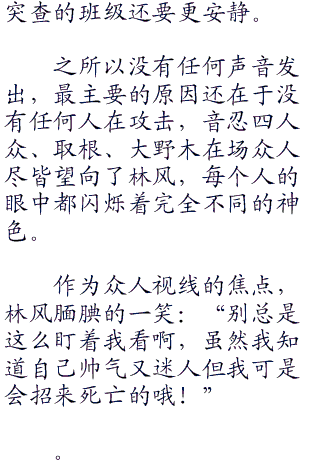 突查的班级还要更安静。
之所以没有任何声音发
出，最主要的原因还在于没
有任何人在攻击，音忍四人
众、取根、大野木在场众人
尽皆望向了林风，每个人的
眼中都闪烁着完全不同的神
色。
作为众人视线的焦点，
林风腼腆的一笑：“别总是
这么盯着我看啊，虽然我知
道自己帅气又迷人但我可是
会招来死亡的哦！”
。